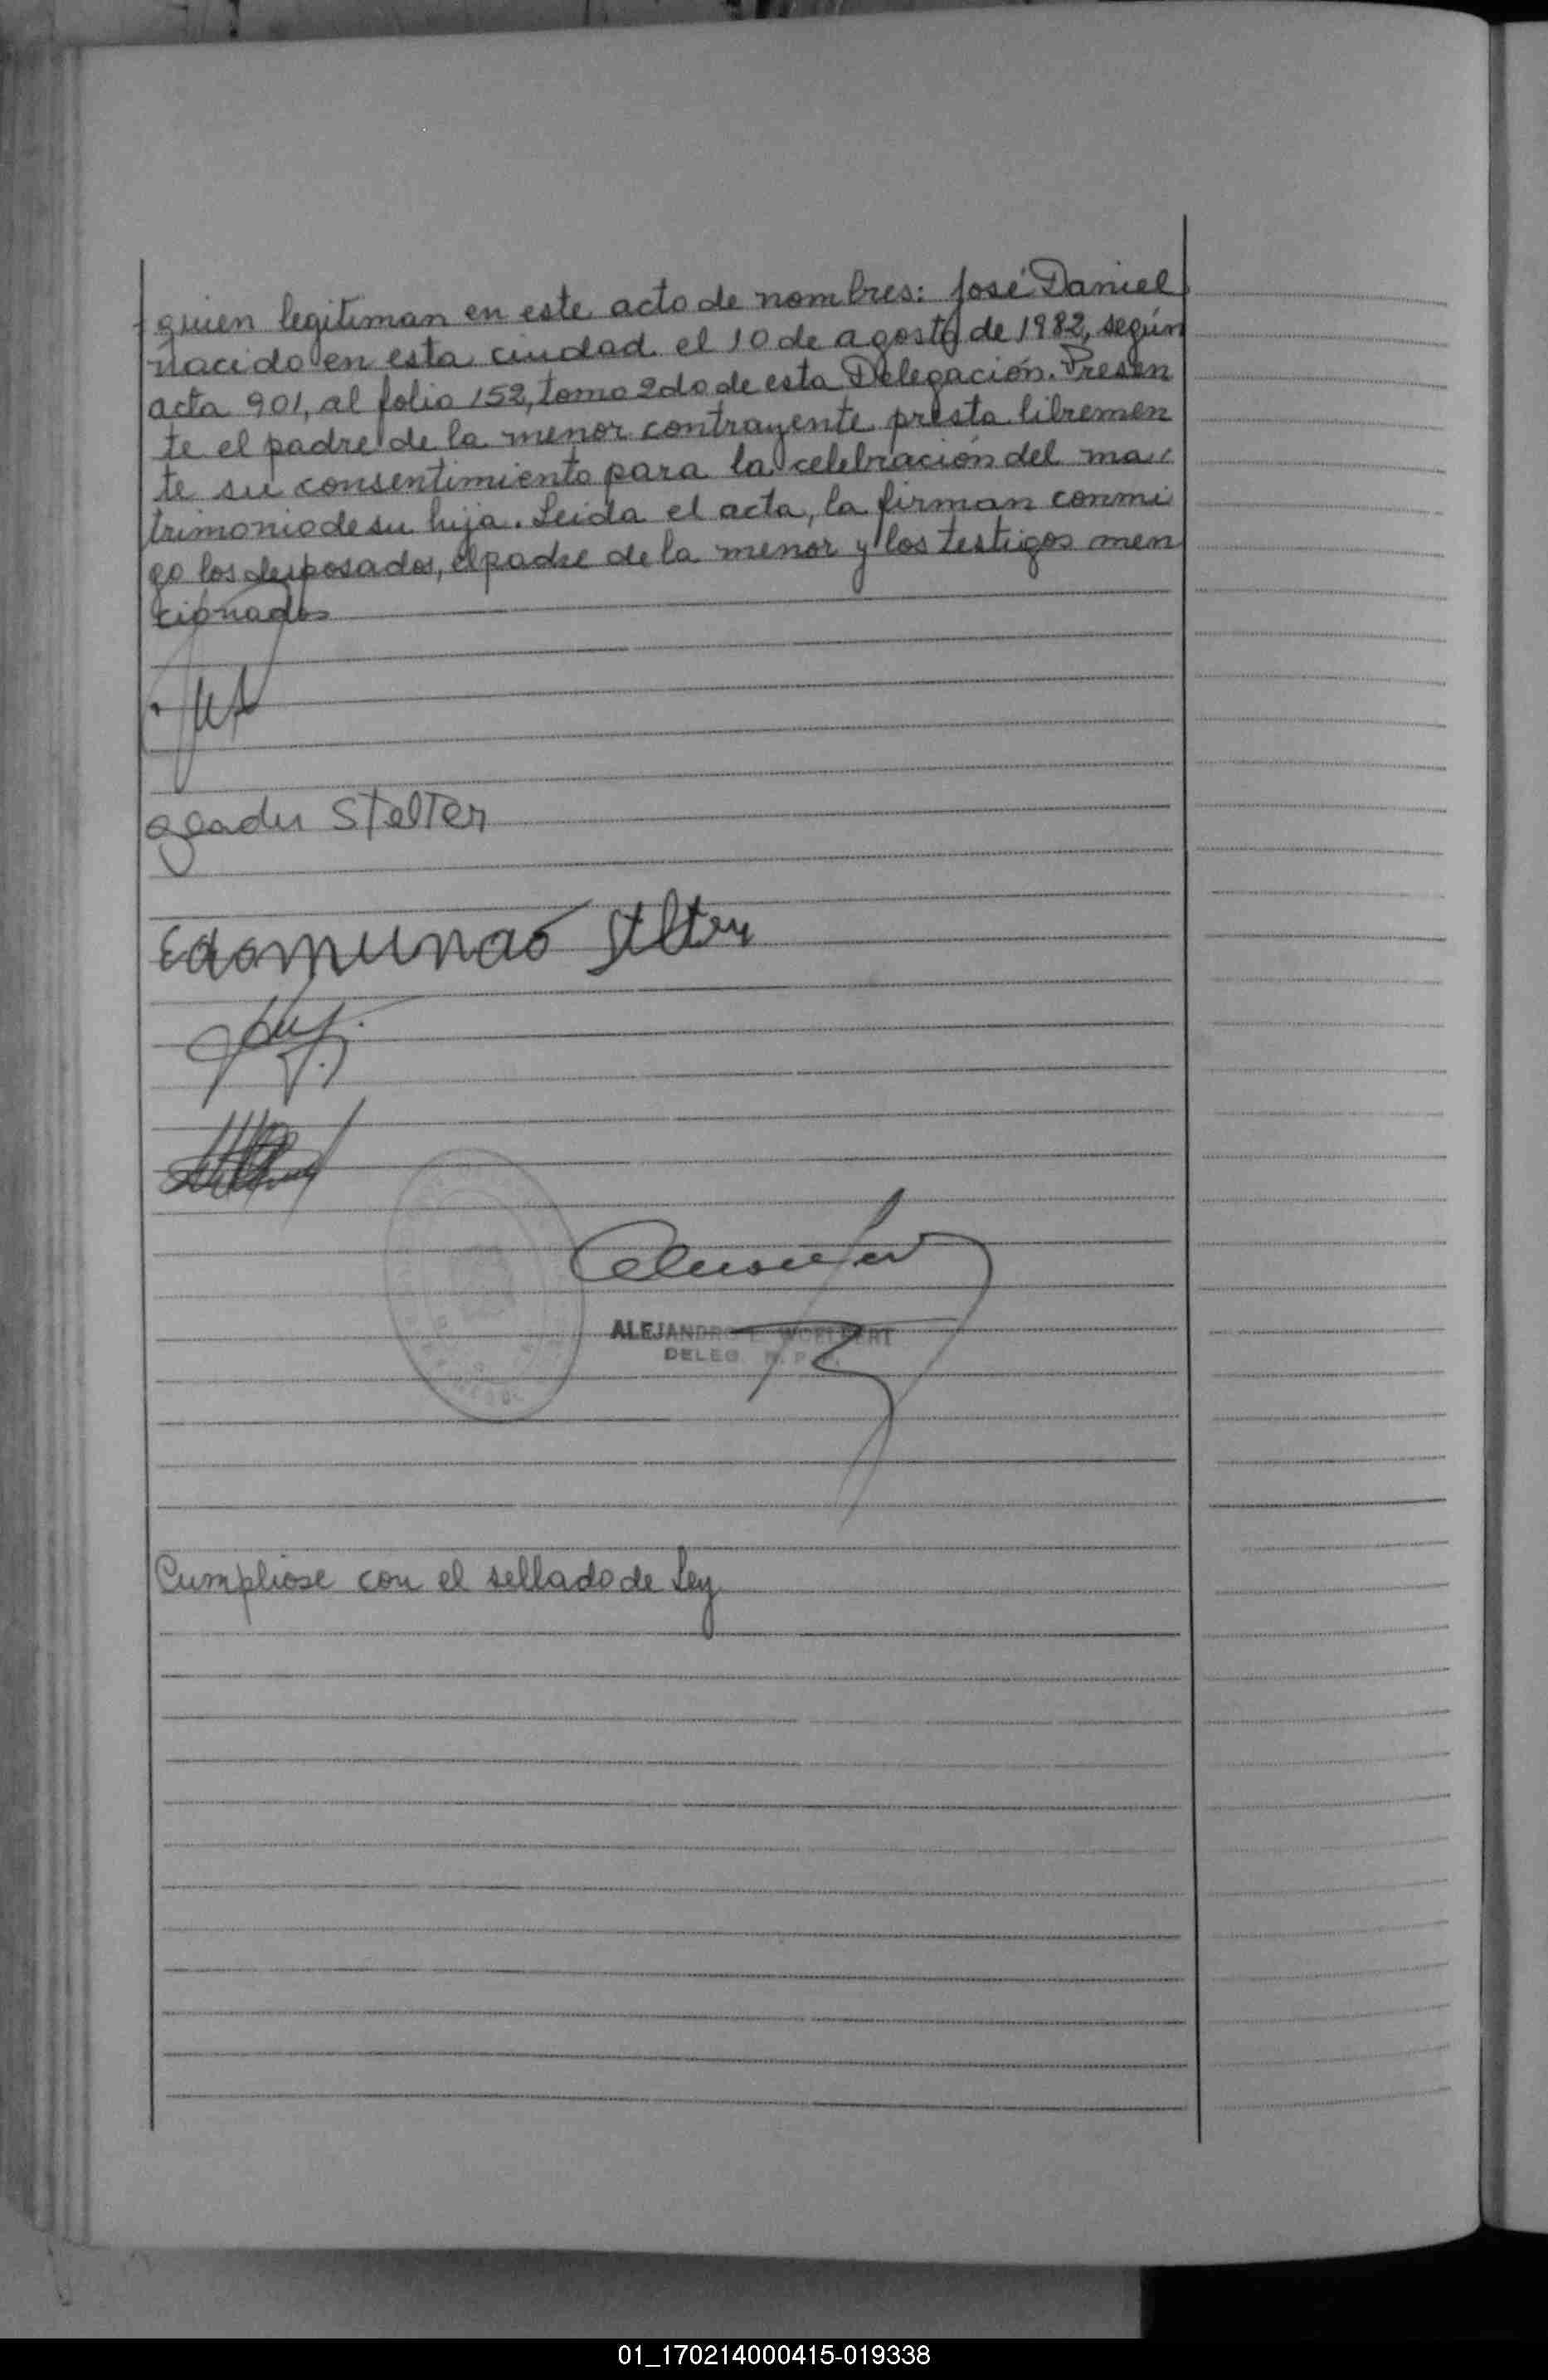 quien legitiman en este acto de nombres: José Daniel
nacido en esta ciudad el 10 de agosto de 1982, según
acta 901, al folio 152, tomo 2do de esta Delegación. Presen
te el padre de la menor contrayente presta libremen
te su consentimiento para la celebración del ma
trimonio de su hija. Leida el acta, la firman conmi
go los desposados, el padre de la menor y los testigos men
cionados
Stelter
Edomundo Stelter
ALEJANDRO
DELEG.
Cumpliose con el sellado de Ley
01_170214000415-019338